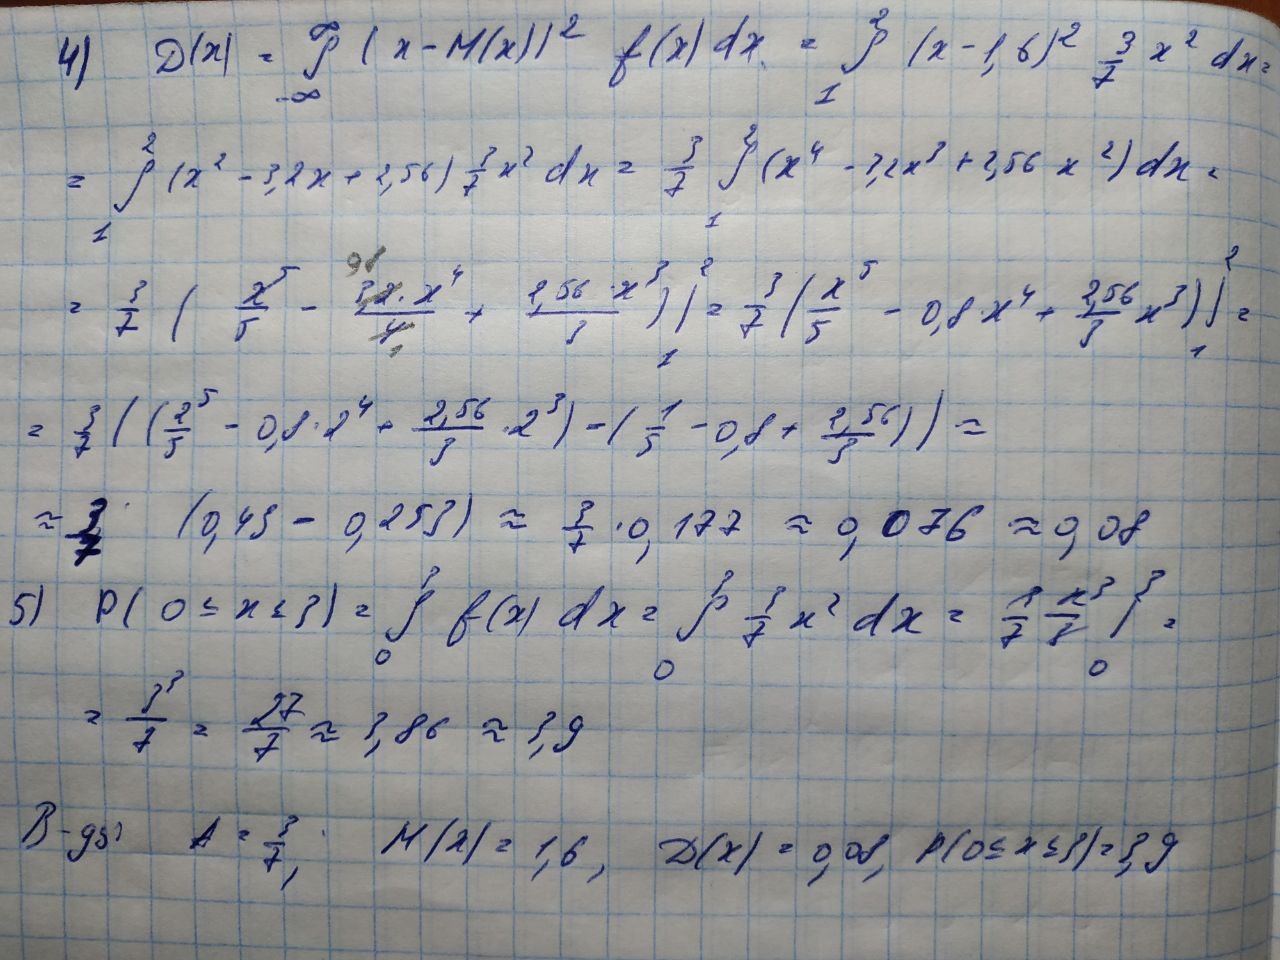 4) D(x) = ∫_{-∞}^{∞} (x - M(x))² f(x) dx = ∫_1^2 (x - 1,6)² 3/7 x² dx =
= ∫_1^2 (x² - 3,2x + 2,56) 3/7 x² dx = 3/7 ∫_1^2 (x⁴ - 3,2x³ + 2,56 x²) dx =
= 3/7 ( x⁵/5 - 3,2·x⁴/4 + 2,56·x³/3 ) |_1^2 = 3/7 ( x⁵/5 - 0,8·x⁴ + 2,56/3 x³ ) |_1^2 =
= 3/7 ( ( 2⁵/5 - 0,8·2⁴ + 2,56/3 · 2³ ) - ( 1/5 - 0,8 + 2,56/3 ) ) ≈
≈ 3/7 (0,43 - 0,253) ≈ 3/7 · 0,177 ≈ 0,076 ≈ 0,08
5) P( 0 ≤ x ≤ 3 ) = ∫_0^3 f(x) dx = ∫_0^3 3/7 x² dx = 3/7 x³/3 |_0^3 =
= 3³/7 = 27/7 ≈ 3,86 ≈ 3,9
В-дь: A = 3/7, M(x) = 1,6, D(x) = 0,08, P(0 ≤ x ≤ 3) = 3,9